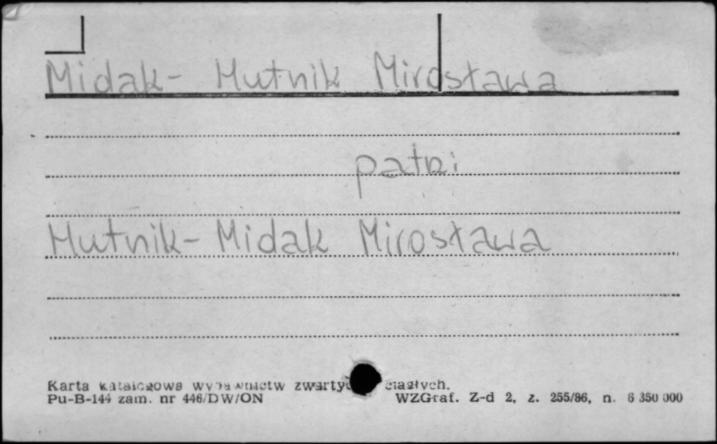 Midak- Hutnik Mirosława
patrz
Hutnik- Midak Mirosława
Karta katalogowa wydawnictw zwartych ciągłych.
Pu-B-144 zam. nr 446/DW/ON WZGraf. Z-d 2, z. 255/86, n. 6 350 000